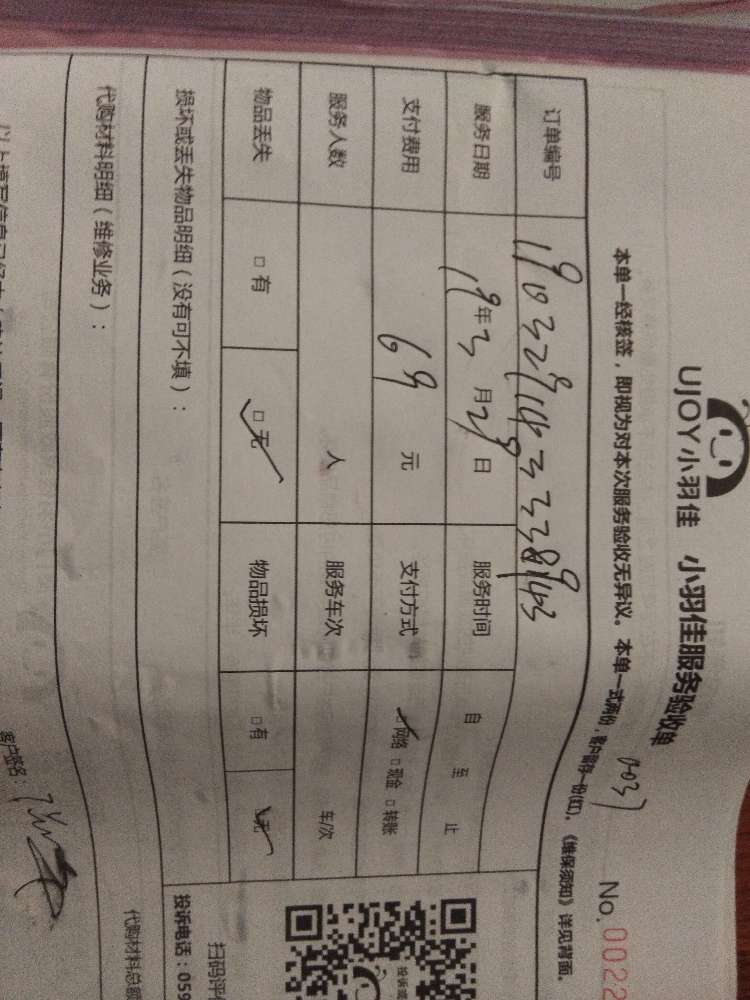 UJOY小羽佳 小羽佳服务验收单
No.0022
本单一经核签，即视为对本次服务验收无异议。本单一式两份，客户留存一份(红)。《维保须知》详见背面。
订单编号
服务日期 19年3月29日 服务时间 自 至 止
支付费用 69元 支付方式 □网络 □现金 □转账
服务人数 人 服务车次 车/次
物品丢失 □有 □无 物品损坏 □有 □无
损坏或丢失物品明细（没有可不填）：
代购材料明细（维修业务）：
代购材料总额
扫码评
投诉电话：059
客户签名：